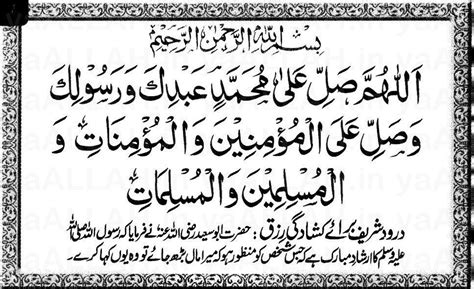 بِسْمِ اللّٰهِ الرَّحْمٰنِ الرَّحِيْمِ
اَللّٰهُمَّ صَلِّ عَلٰى مُحَمَّدٍ عَبْدِكَ وَرَسُوْلِكَ
وَصَلِّ عَلَى الْمُؤْمِنِيْنَ وَالْمُؤْمِنَاتِ وَ
الْمُسْلِمِيْنَ وَالْمُسْلِمَاتِ
درود شریف برائے کشادگی رزق: حضرت ابو سعید رضی اللہ عنہ نے فرمایا کہ رسول اللہ صلی اللہ
علیہ وسلم کا ارشاد مبارک ہے کہ جس شخص کو منظور ہو کہ میرا مال بڑھ جائے تو وہ یوں کہا کرے۔